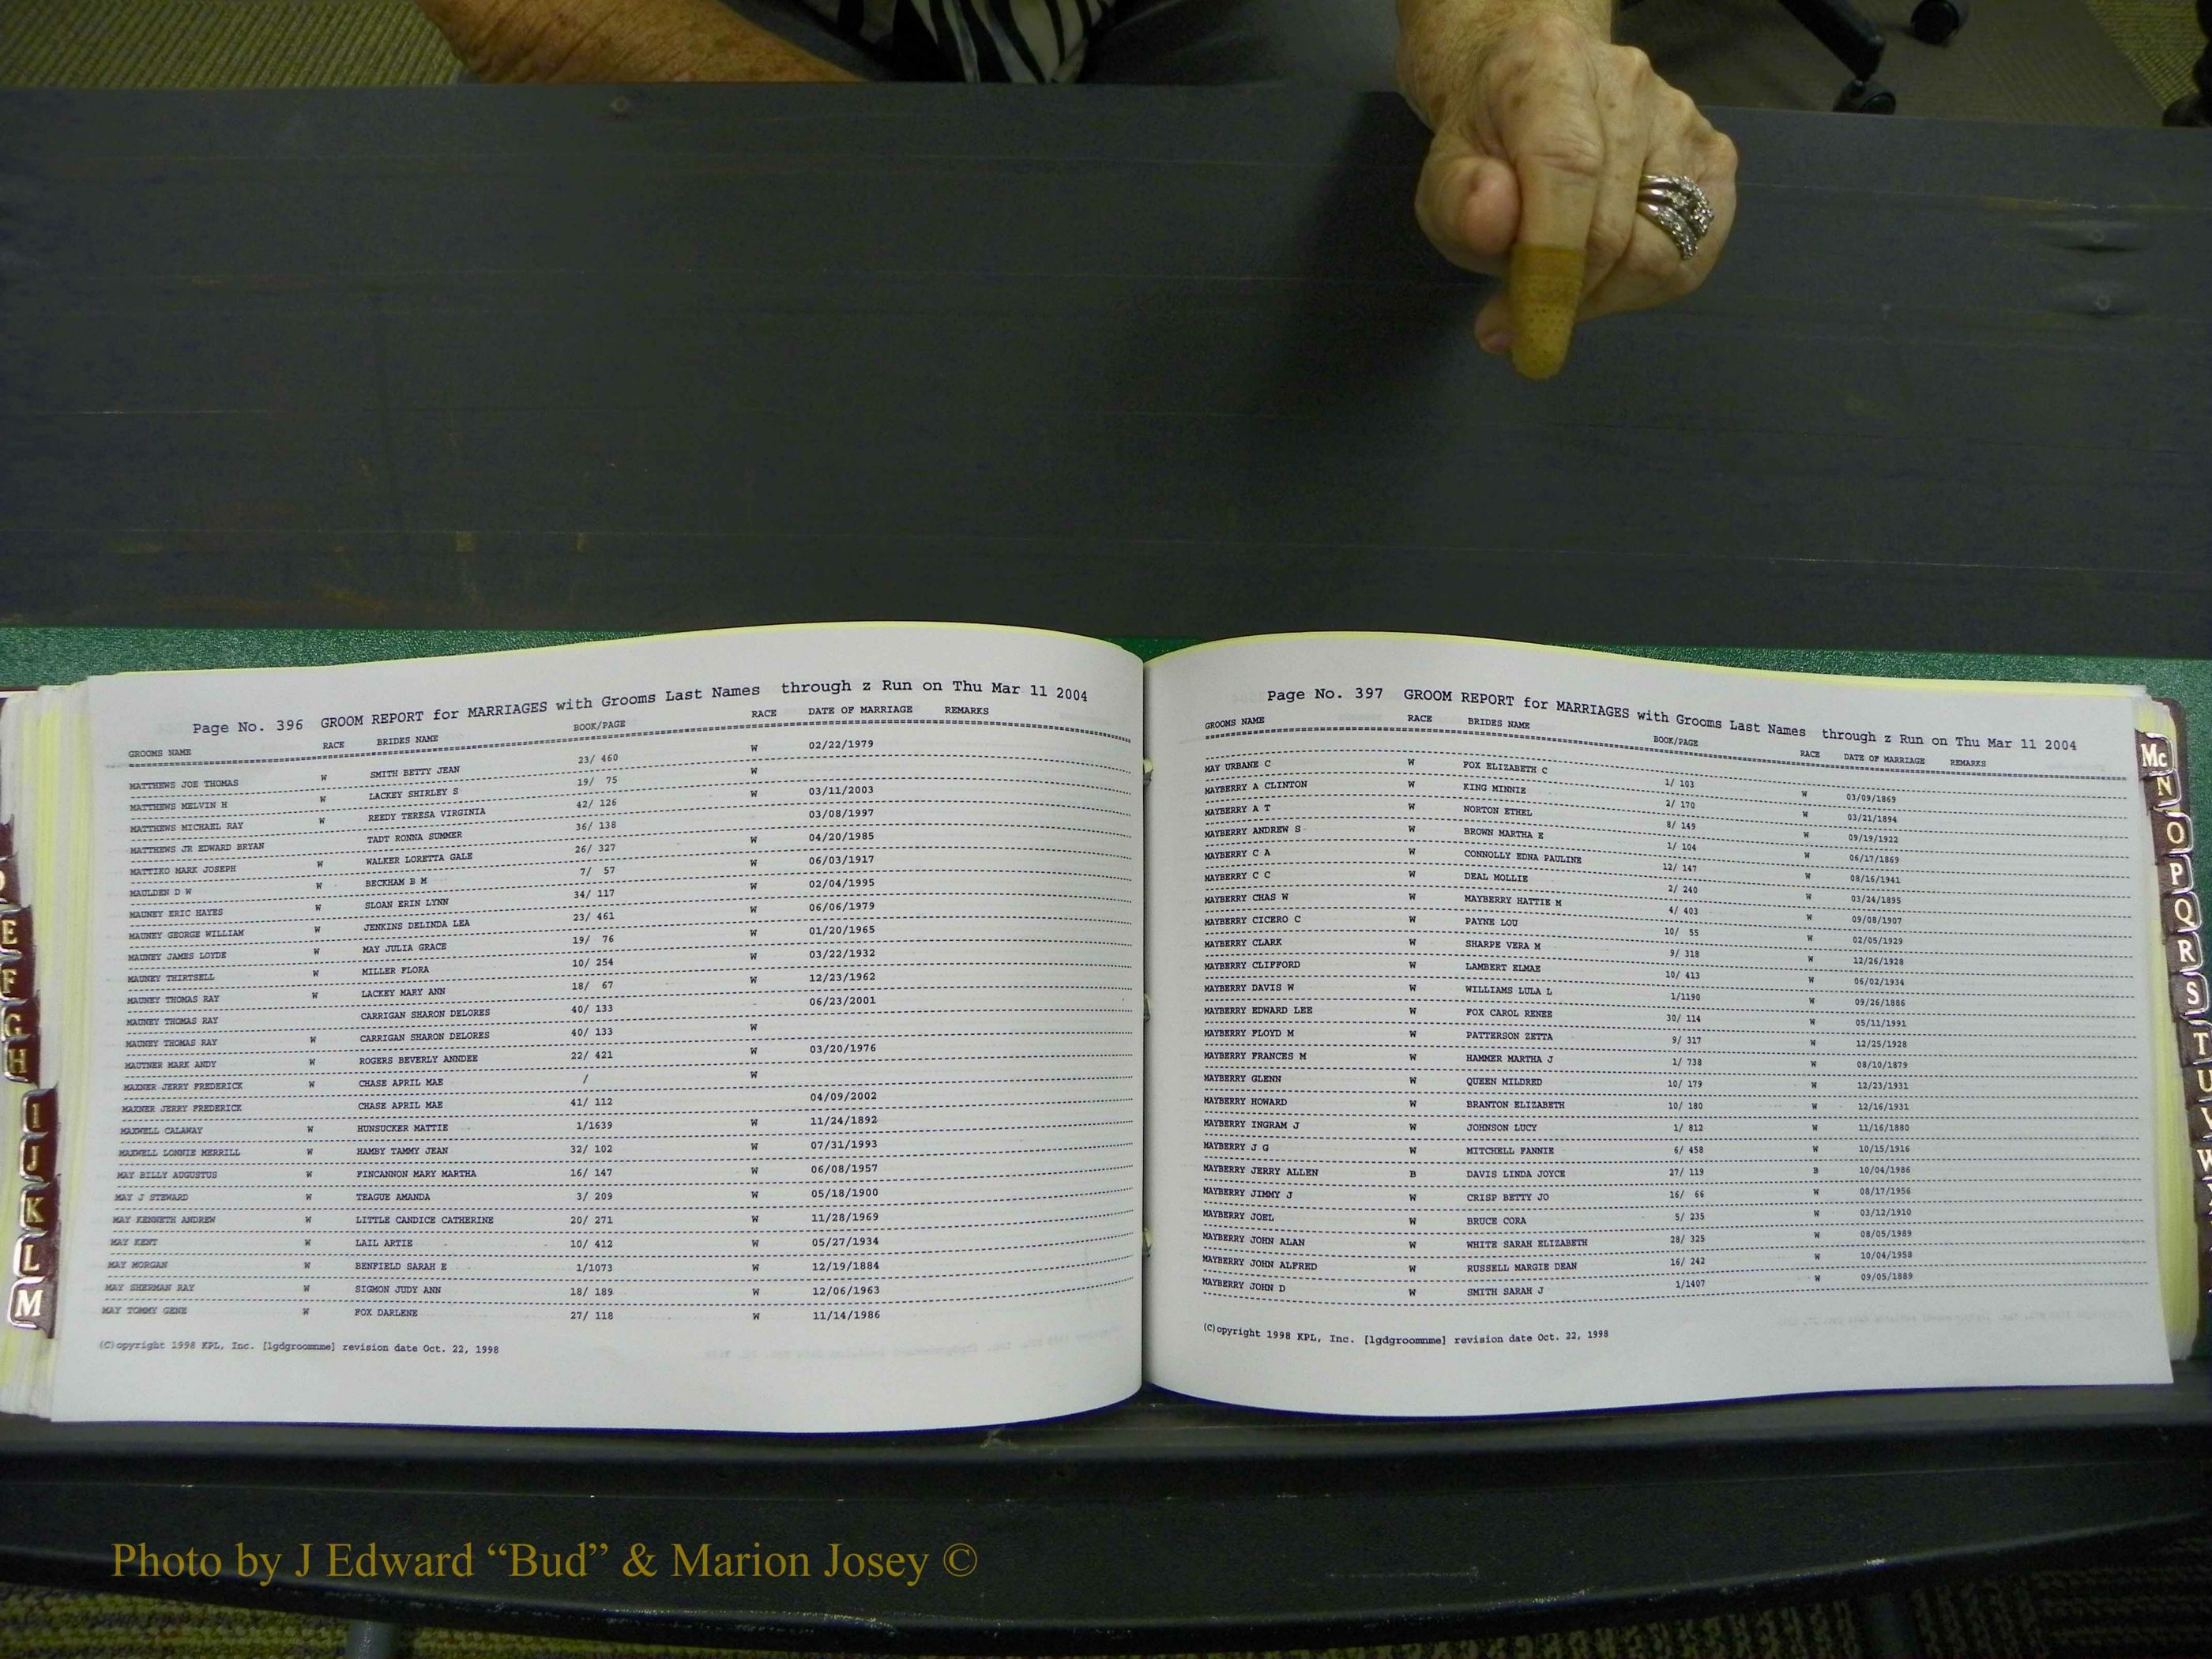 Page No. 396 GROOM REPORT for MARRIAGES with Grooms Last Names through z Run on Thu Mar 11 2004
GROOMS NAME RACE BRIDES NAME BOOK/PAGE RACE DATE OF MARRIAGE REMARKS
MATTHEWS JOE THOMAS W SMITH BETTY JEAN 23/ 460 W 02/22/1979
MATTHEWS MELVIN H W LACKEY SHIRLEY S 19/ 75 W
MATTHEWS MICHAEL RAY W REEDY TERESA VIRGINIA 42/ 126 W 03/11/2003
MATTHEWS JR EDWARD BRYAN TADT RONNA SUMMER 36/ 138 03/08/1997
MATTIKO MARK JOSEPH W WALKER LORETTA GALE 26/ 327 W 04/20/1985
MAULDEN D W W BECKHAM B M 7/ 57 W 06/03/1917
MAUNEY ERIC HAYES W SLOAN ERIN LYNN 34/ 117 W 02/04/1995
MAUNEY GEORGE WILLIAM W JENKINS DELINDA LEA 23/ 461 W 06/06/1979
MAUNEY JAMES LOYDE W MAY JULIA GRACE 19/ 76 W 01/20/1965
MAUNEY THIRTSELL W MILLER FLORA 10/ 254 W 03/22/1932
MAUNEY THOMAS RAY W LACKEY MARY ANN 18/ 67 W 12/23/1962
MAUNEY THOMAS RAY CARRIGAN SHARON DELORES 40/ 133 06/23/2001
MAUNEY THOMAS RAY W CARRIGAN SHARON DELORES 40/ 133 W
MAUTNER MARK ANDY W ROGERS BEVERLY ANNDEE 22/ 421 W 03/20/1976
MAXNER JERRY FREDERICK W CHASE APRIL MAE / W
MAXNER JERRY FREDERICK CHASE APRIL MAE 41/ 112 04/09/2002
MAXWELL CALAWAY W HUNSUCKER MATTIE 1/1639 W 11/24/1892
MAXWELL LONNIE MERRILL W HAMBY TAMMY JEAN 32/ 102 W 07/31/1993
MAY BILLY AUGUSTUS W FINCANNON MARY MARTHA 16/ 147 W 06/08/1957
MAY J STEWARD W TEAGUE AMANDA 3/ 209 W 05/18/1900
MAY KENNETH ANDREW W LITTLE CANDICE CATHERINE 20/ 271 W 11/28/1969
MAY KENT W LAIL ARTIE 10/ 412 W 05/27/1934
MAY MORGAN W BENFIELD SARAH E 1/1073 W 12/19/1884
MAY SHERMAN RAY W SIGMON JUDY ANN 18/ 189 W 12/06/1963
MAY TOMMY GENE W FOX DARLENE 27/ 118 W 11/14/1986
(C)opyright 1998 KPL, Inc. [lgdgroomnme] revision date Oct. 22, 1998
Page No. 397 GROOM REPORT for MARRIAGES with Grooms Last Names through z Run on Thu Mar 11 2004
GROOMS NAME RACE BRIDES NAME BOOK/PAGE RACE DATE OF MARRIAGE REMARKS
MAY URBANE C W FOX ELIZABETH C 1/ 103 W 03/09/1869
MAYBERRY A CLINTON W KING MINNIE 2/ 170 W 03/21/1894
MAYBERRY A T W NORTON ETHEL 8/ 149 W 09/19/1922
MAYBERRY ANDREW S W BROWN MARTHA E 1/ 104 W 06/17/1869
MAYBERRY C A W CONNOLLY EDNA PAULINE 12/ 147 W 08/16/1941
MAYBERRY C C W DEAL MOLLIE 2/ 240 W 03/24/1895
MAYBERRY CHAS W W MAYBERRY HATTIE M 4/ 403 W 09/08/1907
MAYBERRY CICERO C W PAYNE LOU 10/ 55 W 02/05/1929
MAYBERRY CLARK W SHARPE VERA M 9/ 318 W 12/26/1928
MAYBERRY CLIFFORD W LAMBERT ELMAE 10/ 413 W 06/02/1934
MAYBERRY DAVIS W W WILLIAMS LULA L 1/1190 W 09/26/1886
MAYBERRY EDWARD LEE W FOX CAROL RENEE 30/ 114 W 05/11/1991
MAYBERRY FLOYD M W PATTERSON ZETTA 9/ 317 W 12/25/1928
MAYBERRY FRANCES M W HAMMER MARTHA J 1/ 738 W 08/10/1879
MAYBERRY GLENN W QUEEN MILDRED 10/ 179 W 12/23/1931
MAYBERRY HOWARD W BRANTON ELIZABETH 10/ 180 W 12/16/1931
MAYBERRY INGRAM J W JOHNSON LUCY 1/ 812 W 11/16/1880
MAYBERRY J G W MITCHELL FANNIE 6/ 458 W 10/15/1916
MAYBERRY JERRY ALLEN B DAVIS LINDA JOYCE 27/ 119 B 10/04/1986
MAYBERRY JIMMY J W CRISP BETTY JO 16/ 66 W 08/17/1956
MAYBERRY JOEL W BRUCE CORA 5/ 235 W 03/12/1910
MAYBERRY JOHN ALAN W WHITE SARAH ELIZABETH 28/ 325 W 08/05/1989
MAYBERRY JOHN ALFRED W RUSSELL MARGIE DEAN 16/ 242 W 10/04/1958
MAYBERRY JOHN D W SMITH SARAH J 1/1407 W 09/05/1889
(C)opyright 1998 KPL, Inc. [lgdgroomnme] revision date Oct. 22, 1998
E
F
G
H
I
J
K
L
M
Mc
N
O
P
Q
R
S
T
U
V
W
Photo by J Edward “Bud” & Marion Josey ©